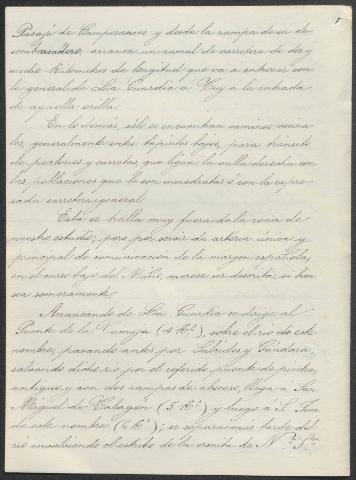 Pasaje de Camposancos y desde la rampa de su de
sembarcadero, arranca un ramal de carretera de dos y
medio kilometros de longitud que va á enlazar con
la general de La Guardia á Tuy a la entrada
de aquella villa.
En lo demás, sólo se encuentran caminos vecina
les, generalmente entre tapiales bajos, para tránsito
de peatones y carretas, que ligan la orilla derecha con
las poblaciones que la son inmediatas ó con la expre
sada carretera general.
Esta se halla muy fuera de la zona de
nuestro estudio; pero, por servir de arteria única y
principal de comunicación de la margen española,
en el curso bajo del Miño, merece ser descrita, si bien
sea someramente.
Arrancando de La Guardia se dirige al
Puente de la Tamuja (4 Ks), sobre el rio de este
nombre, pasando antes por Salcidos y Gándara,
salvando dicho rio por el referido puente de piedra,
antiguo y con dos rampas de acceso, llega á San
Miguel de Tabagón (5 Ks) y luego á el Juan
de este nombre (6 Ks); se separa mas tarde del
rio envolviendo el estribo de la ermita de Na Sra